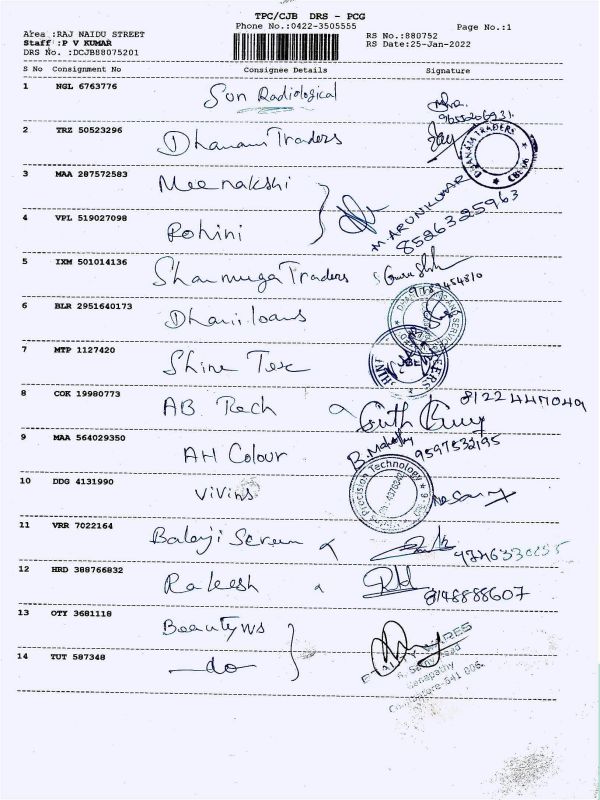 TPC/CJB DRS - PCG
Phone No.:0422-3505555
Page No.:1
Area :RAJ NAIDU STREET
Staff :P V KUMAR
DRS No. :DCJB88075201
RS No.:880752
RS Date:25-Jan-2022
S No Consignment No Consignee Details Signature
1 NGL 6763776 Sun Radiological
2 TRZ 50523296 Dhanam Traders
DHANAM TRADERS
3 MAA 287572583 Meenakshi
4 VPL 519027098 Rohini
M. ARUNKUMAR
8526325963
5 IXM 501014136 Shanmuga Traders
6 BLR 2951640173 Dhani loans
7 MTP 1127420 Shine Tex
8 COK 19980773 AB Tech
8122447049
9 MAA 564029350 AH Colour
9597532195
10 DDG 4131990 Vivins
Precision Technology
11 VRR 7022164 Balaji Screen
12 HRD 388766832 Rakesh
8148888607
13 OTY 3681118 Beautyws
14 TUT 587348 do
Ganapathy
Coimbatore-641 006.